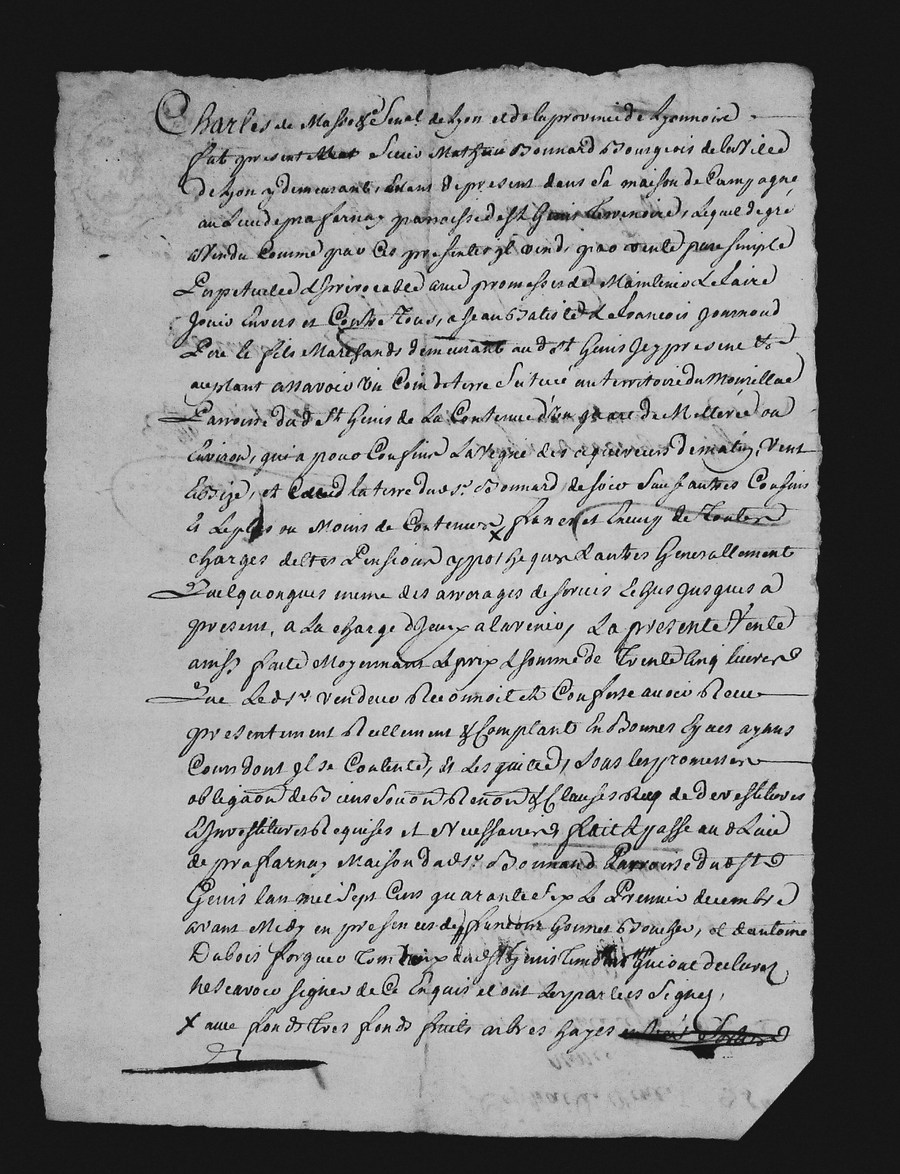 Charles de Masso &c Senal. de Lyon et de la province de Lyonnoire
fut present Sieur Mathieu Bonnard Bourgeois de la Ville
de Lyon y demeurant, Etant de present dans Sa maison de Campagne
au Lieu de prafarnay parroisse de st Genis Terrenoire, Lequel de gré
a Vendu Comme par Ces presentes yl vend, par vente pure simple
Perpetuelle & irrevocable avec promesses de Maintenir Le faire
Jouir Envers et Contre Tous, a Jean Batiste & francois Journoud
Pere & fils Marchands demeurant au d. st Genis Jcy present &
aceptant assavoir Un Coin de terre Scitué au territoire du Mouillac
Parroisse du d. St. Genis de La Contenue d'Un quart de Metteré ou
Environ, qui a pour Confins La vigne des aquereurs de matin, Vent
& Bize, et la terre du d. sr. Bonnard, de soir Sauf autres Confins
Et Le plus ou Moins de Contenue x franc et Exemp de Toutes
charges dettes Pensions ypotheques & autres Generallement
Quelquonques meme des arrerages de servis Echus Jusques a
present, a La charge d'Jceux a lavenir, La presente Vente
ainsy faite Moyennant Le prix & somme de Trente Cinq livres
Que Le d. sr. vendeur Reconnoit et Confesse avoir Reçu
presentement Reellement & Comptant En Bonnes Especes ayant
Cours dont yl se Contente, Et Les quitte, sous Les promesses
obligaon de Biens Soumon Renon & Clauses Req de devestitures
& Jnvestitures Requises et Necessaires fait & passé au d Lieu
de prafarnay Maison du d. sr. Bonnard Parroisse du d st
Genis Lan mil sept Cens quarante Six Le Premier decembre
avant Midy en presences de francois Gonnet Boucher, et d'antoine
Dubois forgeur Tous deux du d st Genis Temoins qui ont declaré
Ne Scavoir signer de Ce Enquis et ont Les parties Signé,
x avec fonds Tres fonds fruits arbres hayes